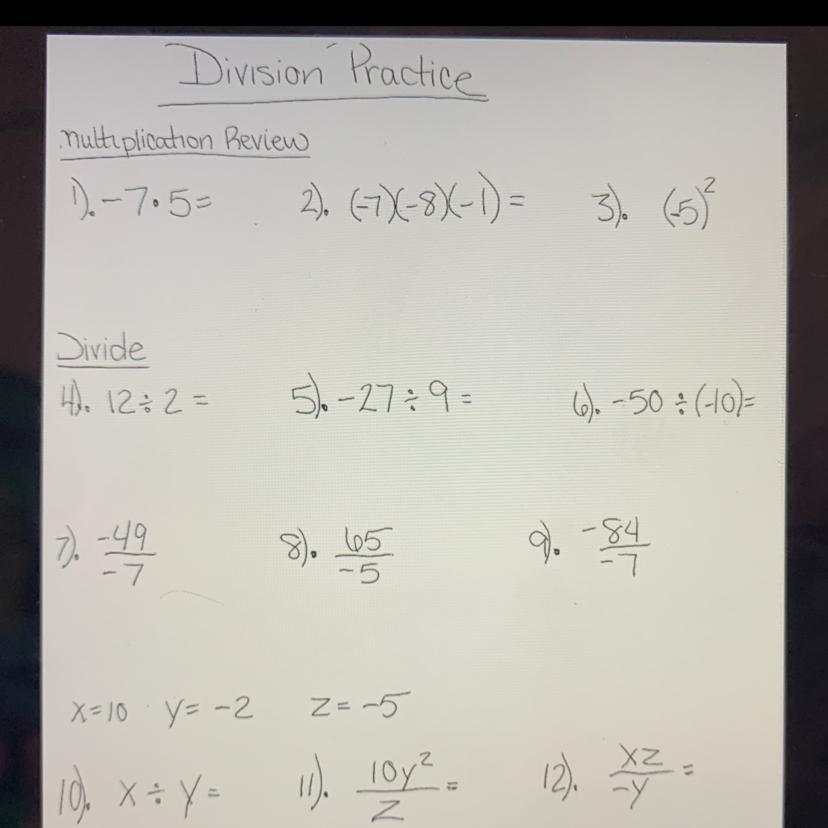 Division Practice
Multiplication Review
1). -7·5= 2). (-7)(-8)(-1)= 3). (-5)²
Divide
4). 12÷2= 5). -27÷9= 6). -50÷(-10)=
7). -49/-7 8). 65/-5 9). -84/-7
x=10 y=-2 z=-5
10). x÷y= 11). 10y²/z= 12). xz/-y=